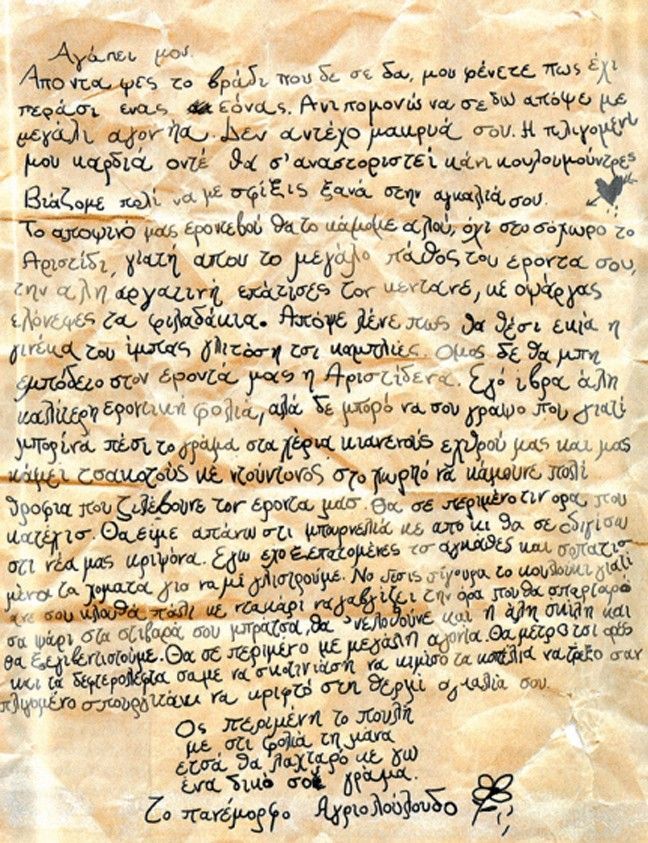 Αγάπει μου.
Απο ντα ψες το βράδι που δε σε δα, μου φένετε πως έχι
περάσι ενας εόνας. Ανιπομονώ να σε δω απόψε με
μεγάλι αγονήα. Δεν αντέχο μακρυά σου. Η πλιγομένι
μου καρδιά οντέ θα σ'αναστοριστεί κάνι κουλουμούντρες
Βιάζομε πολί να με σφίξις ξανά στην αγκαλιά σου.
Το αποψινό μας εροντεβού θα το κάμομε αλού, όχι στο σόχωρο το
Αριστίδι, γιατή απου το μεγάλο πάθος του εροντα σου,
την αλη αργατινή επάτισες τον κεντανε, κε οψάργας
ελόνεψες τα φιλαδάκια. Απόψε λένε πως θα θέσι εκιά η
γινέκα του ίμπας γλιτόση τσι καμπλιές. Ομος δε θα μπη
εμπόδειο στον έροντά μας η Αριστίδενα. Εγό ίβρα άλη
καλίτερη εροντική φολιά, αλά δε μπορό να σου γραψο που γιατί
μπορίνα πέσι το γράμα στα χέρια κιανενούς εχθρού μας και μας
κάψει τσακοτούς κε ντούντονος στο χωρηό να κάμουνε πολί
θροφια που ζιλέβουνε τον εροντα μας. Θα σε περιμένο τιν ορα που
κατέχισ. Θα είμε απάνω στι μπουρνελιά κε απο κι θα σε οδιγίσω
στι νέα μας κριψόνα. Εγω εχο ξεπατομένες τσ αγκάθες και σοπατισ
μένα τα χοματα για να μι γλιστρούμε. Νο δεσις σίγουρα το κουλούκι γιατί
ανε σου κλουθά πάλι κε ντακάρι να γαβγίζει την όρα που θα σπαρταρό
σα ψάρι στα στιβαρά σου μπράτσα, θα 'νελοθούνε και η άλη σκίλη και
θα ξεγιβεντιστούμε. Θα σε περιμένο με μεγάλη αγονία. Θα μέτρο τσι
και τα δεφτερολέφτα σαμε να σκοτινιάση να κιμίσο τα κοπέλια να τρέξο σαν
πλιγομένο σπουργιτάκι να κριφτό στη θερμί αγκαλιά σου.
Ος περιμένη το πουλή
με στι φολιά τη μάνα
ετσά θα λαχταρό κε γω
ένα δικό σου γράμα.
Το πανέμορφο Αγριολούλουδο